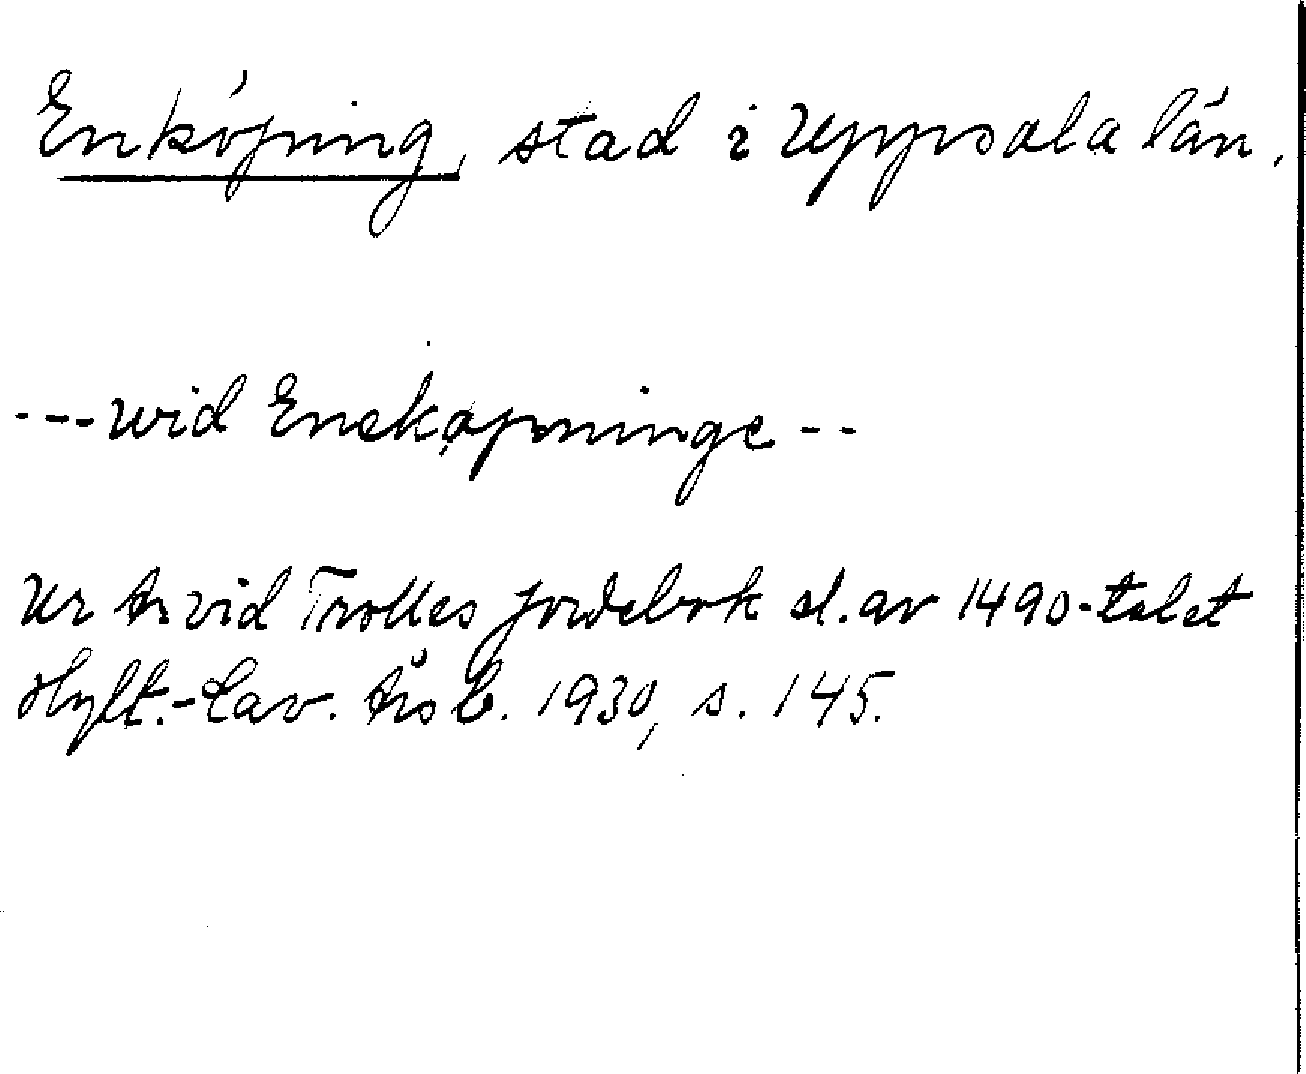 Enköping, stad i Uppsala län.
--- wid Enekøpninge --
Ur Arvid Trolles jordebok sl. av 1490-talet
Hylt.-Cav. Årsb. 1930, s. 145.